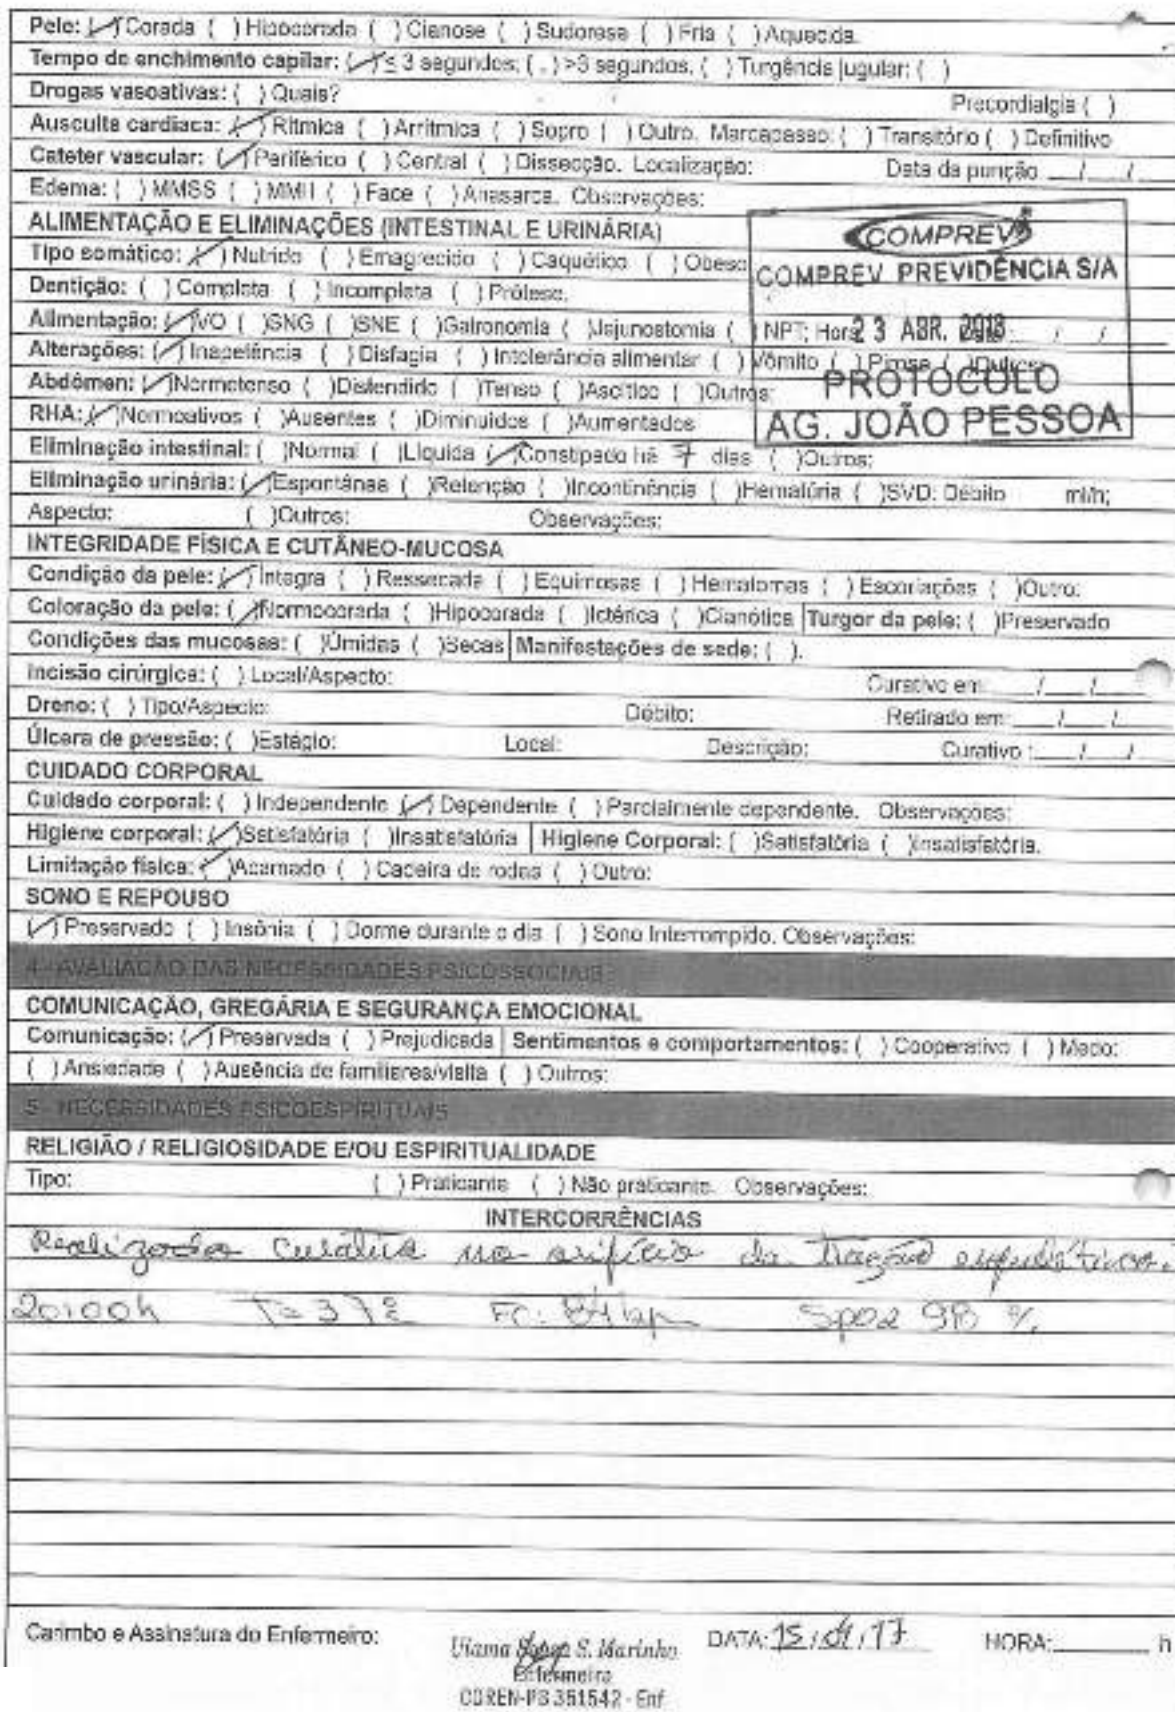 Pele: (✓) Corada ( ) Hipocorada ( ) Cianose ( ) Sudorese ( ) Fria ( ) Aquecida.
Tempo de enchimento capilar: (✓) ≤ 3 segundos; ( ) >3 segundos, ( ) Turgência jugular: ( )
Drogas vasoativas: ( ) Quais? Precordialgia ( )
Ausculta cardíaca: (✓) Rítmica ( ) Arrítmica ( ) Sopro ( ) Outro. Marcapasso: ( ) Transitório ( ) Definitivo
Cateter vascular: (✓) Periférico ( ) Central ( ) Dissecção. Localização: Data da punção __/__/__
Edema: ( ) MMSS ( ) MMII ( ) Face ( ) Anasarca. Observações:
ALIMENTAÇÃO E ELIMINAÇÕES (INTESTINAL E URINÁRIA)
Tipo somático: (✓) Nutrido ( ) Emagrecido ( ) Caquético ( ) Obeso
Dentição: ( ) Completa ( ) Incompleta ( ) Prótese.
Alimentação: (✓)VO ( )SNG ( )SNE ( )Gatronomia ( )Jejunostomia ( ) NPT; Hora
Alterações: (✓) Inapetência ( ) Disfagia ( ) Intolerância alimentar ( ) Vômito ( ) Pirose ( )Outros
Abdômen: (✓)Normotenso ( )Distendido ( )Tenso ( )Ascítico ( )Outros:
RHA: (✓)Normoativos ( )Ausentes ( )Diminuídos ( )Aumentados
COMPREV
COMPREV PREVIDÊNCIA S/A
23 ABR. 2018
PROTOCOLO
AG. JOÃO PESSOA
Eliminação intestinal: ( )Normal ( )Líquida (✓)Constipado há 7 dias ( )Outros:
Eliminação urinária: (✓)Espontânea ( )Retenção ( )Incontinência ( )Hematúria ( )SVD: Débito ml/h;
Aspecto: ( )Outros: Observações:
INTEGRIDADE FÍSICA E CUTÂNEO-MUCOSA
Condição da pele: (✓) Íntegra ( ) Ressecada ( ) Equimoses ( ) Hematomas ( ) Escoriações ( )Outro:
Coloração da pele: (✓)Normocorada ( )Hipocorada ( )Ictérica ( )Cianótica Turgor da pele: ( )Preservado
Condições das mucosas: ( )Úmidas ( )Secas Manifestações de sede: ( ).
Incisão cirúrgica: ( ) Local/Aspecto: Curativo em: __/__/__
Dreno: ( ) Tipo/Aspecto: Débito: Retirado em: __/__/__
Úlcera de pressão: ( )Estágio: Local: Descrição: Curativo : __/__/__
CUIDADO CORPORAL
Cuidado corporal: ( ) Independente (✓) Dependente ( ) Parcialmente dependente. Observações:
Higiene corporal: (✓)Satisfatória ( )Insatisfatória Higiene Corporal: ( )Satisfatória ( )Insatisfatória.
Limitação física: (✓)Acamado ( ) Cadeira de rodas ( ) Outro:
SONO E REPOUSO
(✓) Preservado ( ) Insônia ( ) Dorme durante o dia ( ) Sono Interrompido. Observações:
4 - AVALIAÇÃO DAS NECESSIDADES PSICOSSOCIAIS
COMUNICAÇÃO, GREGÁRIA E SEGURANÇA EMOCIONAL
Comunicação: (✓) Preservada ( ) Prejudicada Sentimentos e comportamentos: ( ) Cooperativo ( ) Medo:
( ) Ansiedade ( ) Ausência de familiares/visita ( ) Outros:
5 - NECESSIDADES PSICOESPIRITUAIS
RELIGIÃO / RELIGIOSIDADE E/OU ESPIRITUALIDADE
Tipo: ( ) Praticante ( ) Não praticante. Observações:
INTERCORRÊNCIAS
Realizada curativo no orifício da tração
20:00h T= 37º FC: 84 bpm Spo2 98 %
Carimbo e Assinatura do Enfermeiro: DATA: 15/ /17 HORA:______ h
S. Marinho
Enfermeira
COREN-PB 351542 - Enf